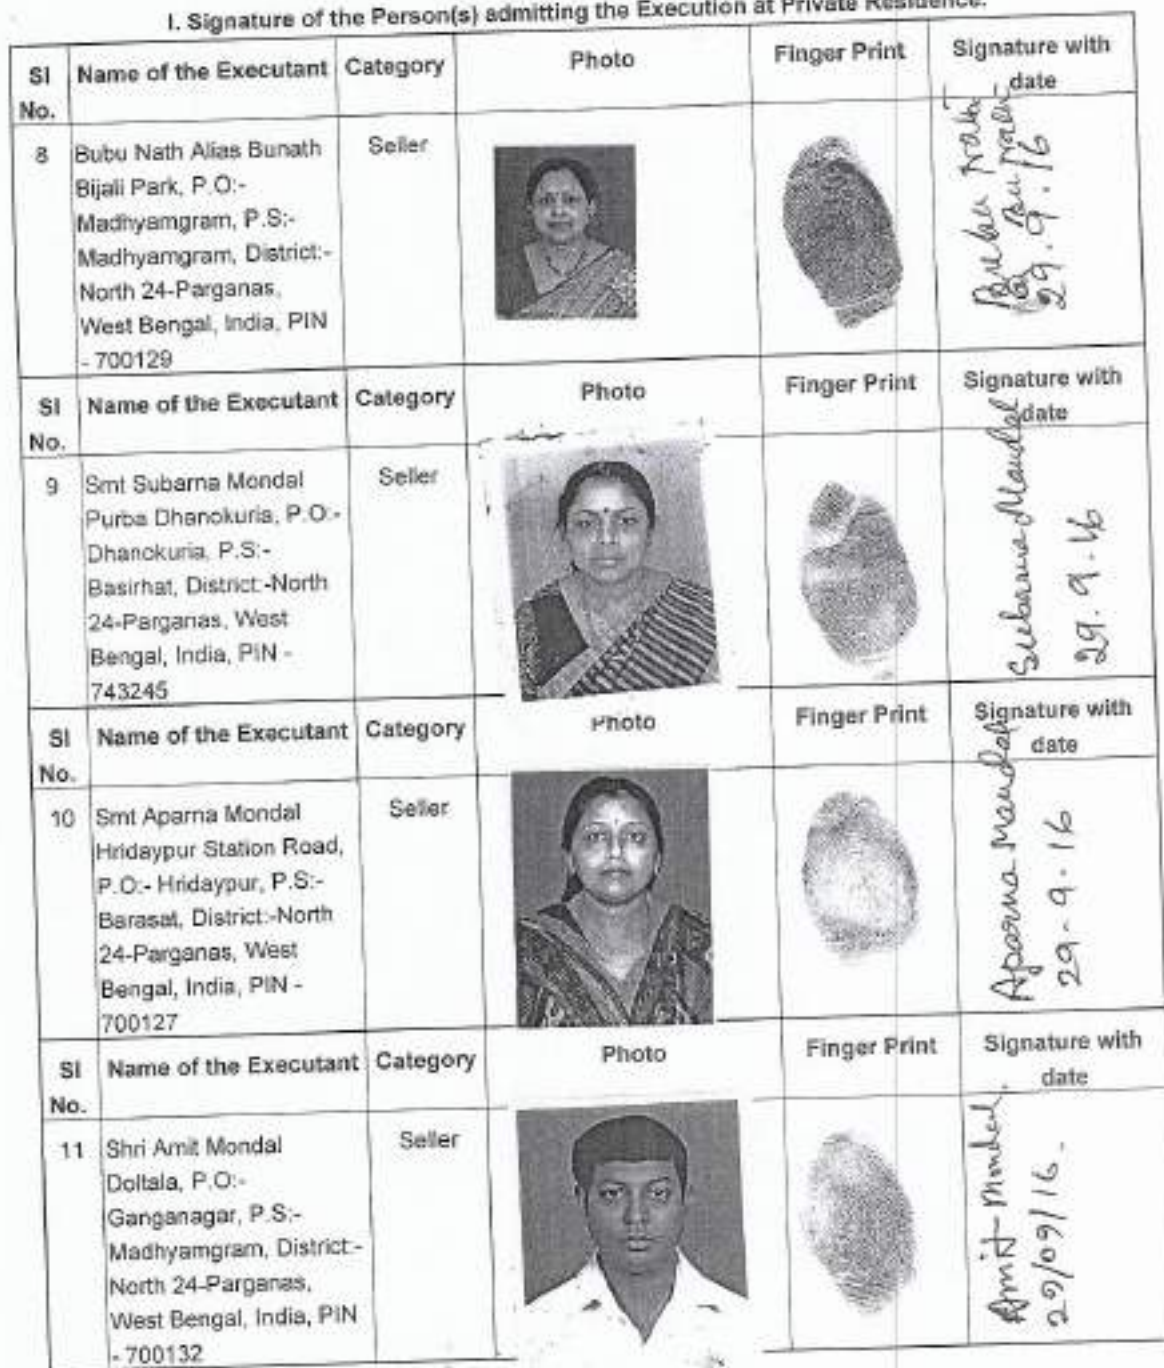 I. Signature of the Person(s) admitting the Execution at Private Residence.
Sl No. Name of the Executant Category Photo Finger Print Signature with date
8 Bubu Nath Alias Bunath Seller
Bijali Park, P.O:-
Madhyamgram, P.S:-
Madhyamgram, District:-
North 24-Parganas,
West Bengal, India, PIN
- 700129
29.9.16
Sl No. Name of the Executant Category Photo Finger Print Signature with date
9 Smt Subarna Mondal Seller
Purba Dhanokuria, P.O:-
Dhanokuria, P.S:-
Basirhat, District:-North
24-Parganas, West
Bengal, India, PIN -
743245
Subarna Mandal
29.9.16
Sl No. Name of the Executant Category Photo Finger Print Signature with date
10 Smt Aparna Mondal Seller
Hridaypur Station Road,
P.O:- Hridaypur, P.S:-
Barasat, District:-North
24-Parganas, West
Bengal, India, PIN -
700127
Aparna Mandal
29-9-16
Sl No. Name of the Executant Category Photo Finger Print Signature with date
11 Shri Amit Mondal Seller
Doltala, P.O:-
Ganganagar, P.S:-
Madhyamgram, District:-
North 24-Parganas,
West Bengal, India, PIN
- 700132
Amit Mondal.
29/09/16.